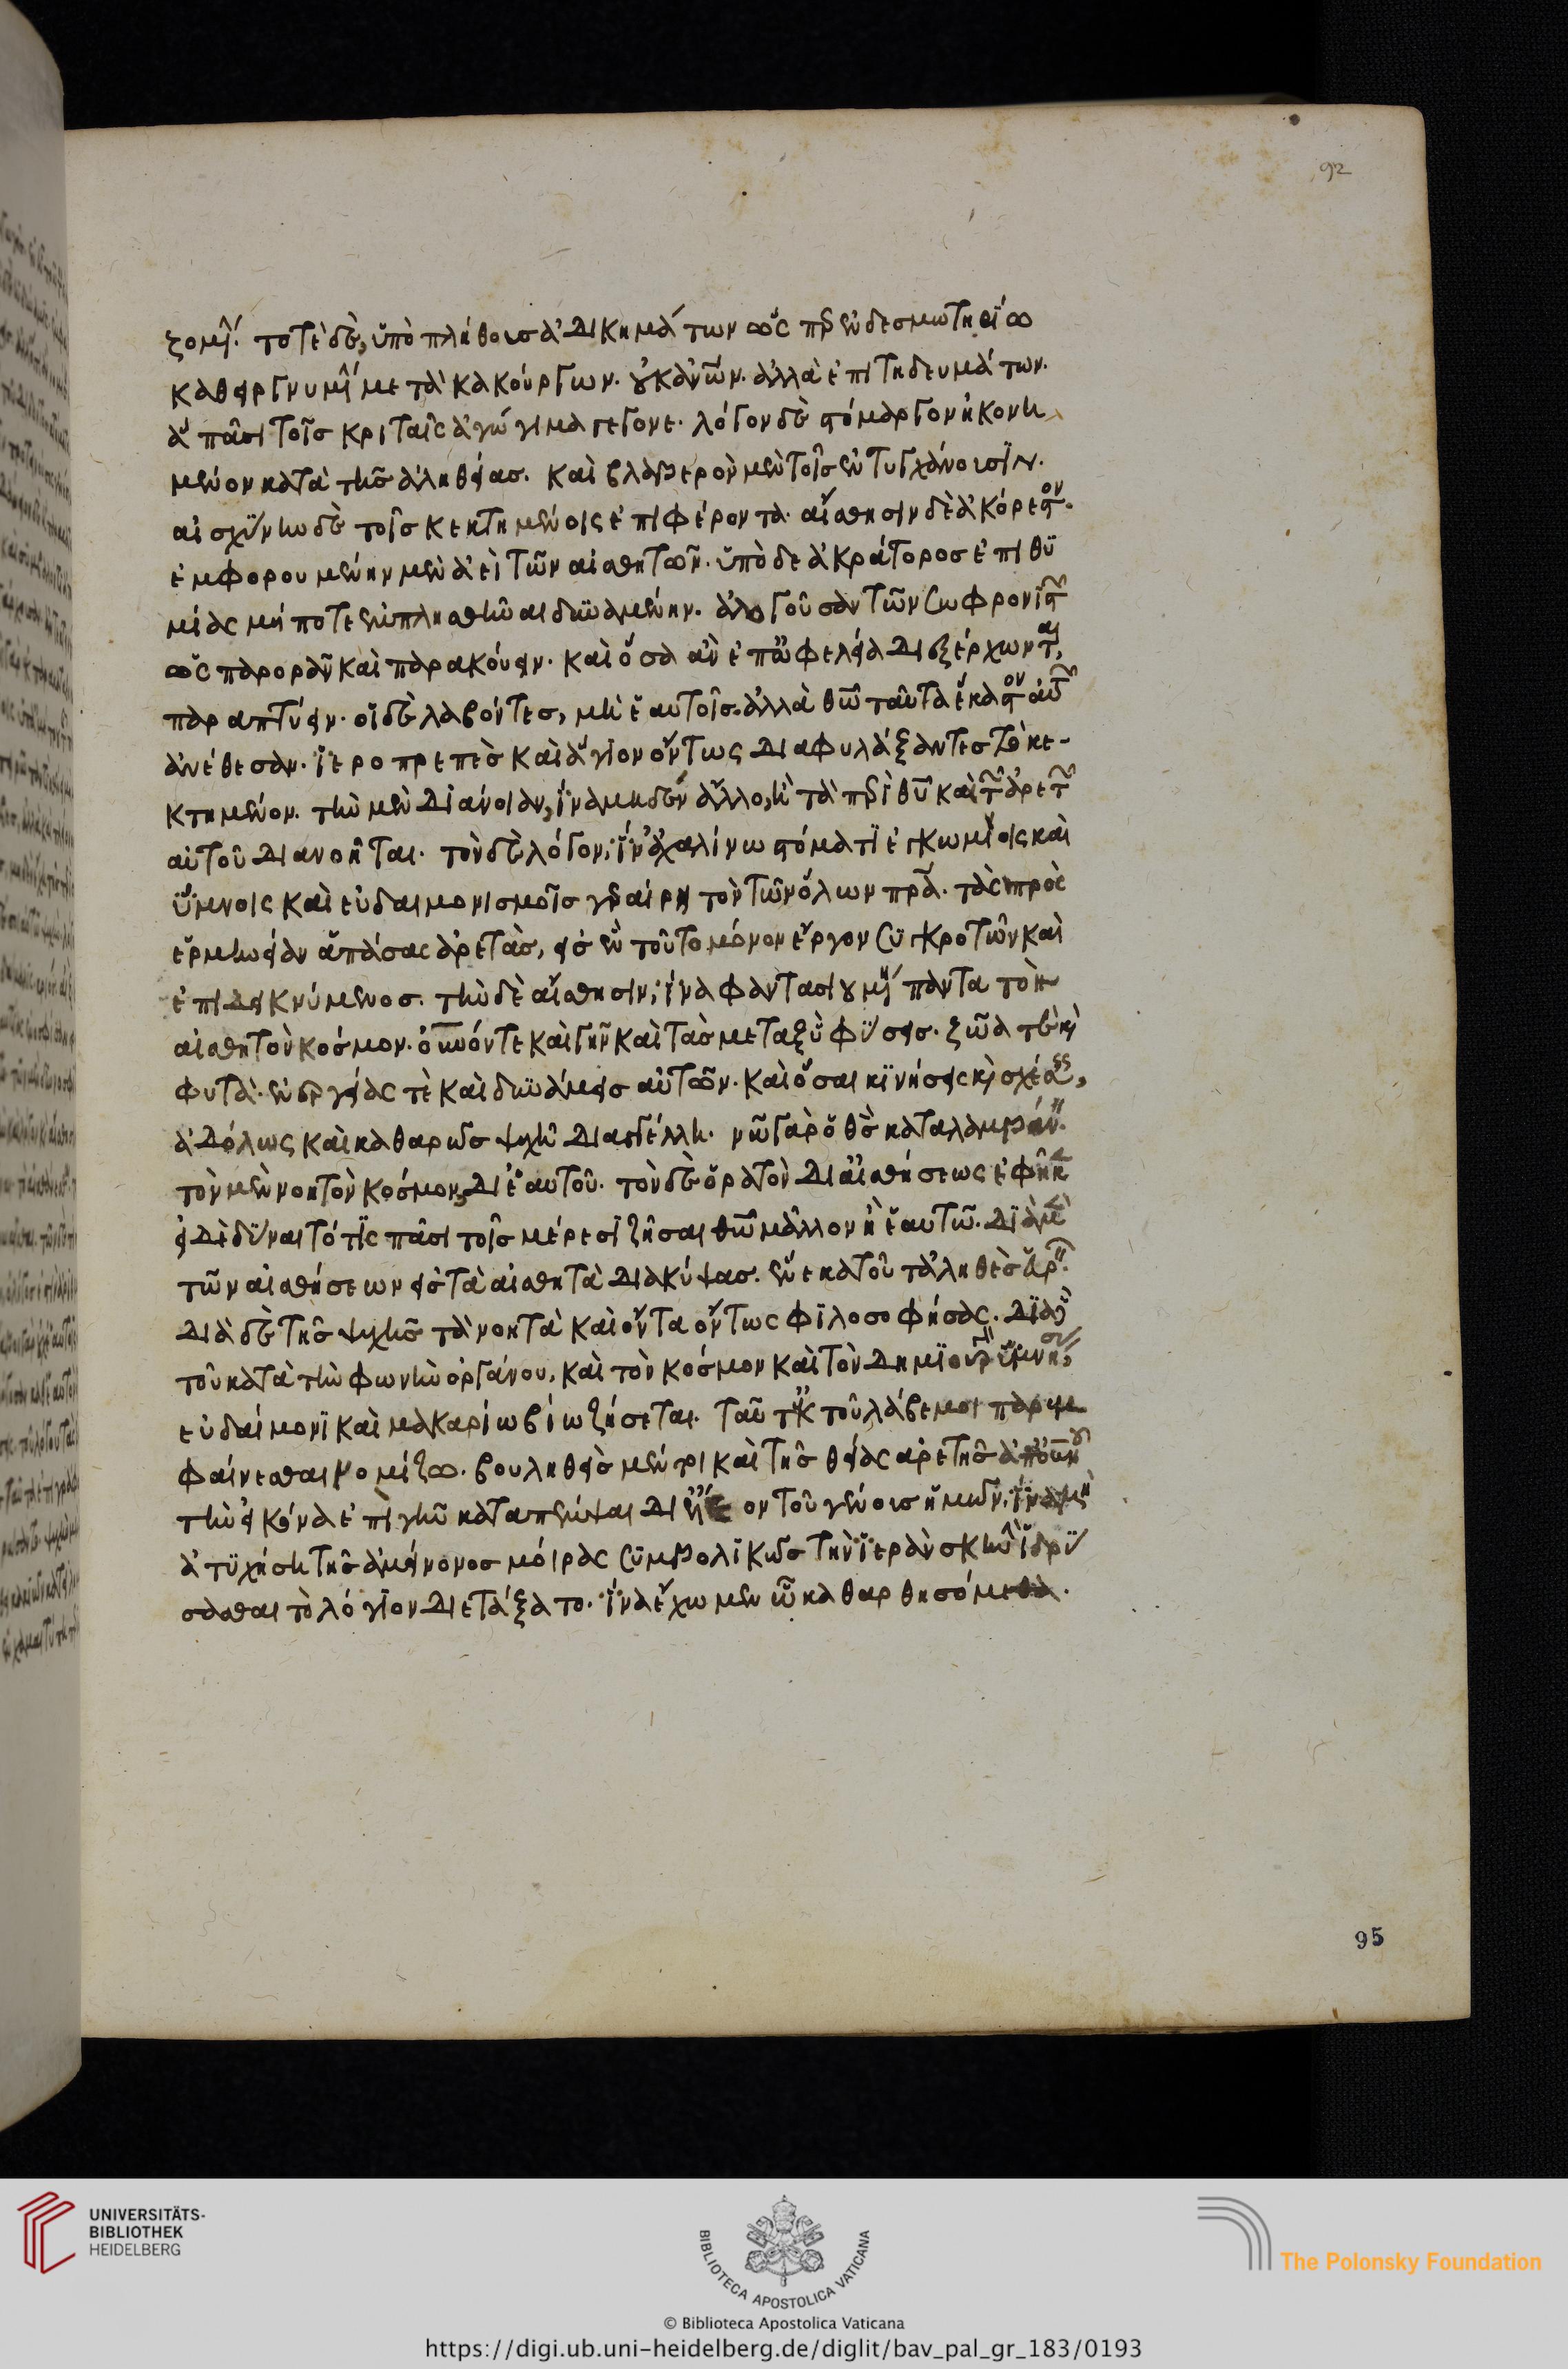 ζομέν. τοτὲ δὲ, ὑπὸ πλήθους ἀδικημάτων ὡς περ ἐν δεσμωτηρίω
καθειργνυμέν μετὰ κακούργων. οὐκ ἀνῶν. ἀλλὰ ἐπιτηδευμάτων.
ἃ πᾶσι τοῖς κριταῖς ἀγώγιμα γέγονε. λόγον δὲ στόμαργον ἠκονη
μένον κατὰ τῆς ἀληθείας. καὶ βλαβερὸν μὲν τοῖς ἐντυγχάνουσιν.
αἰσχύνην δὲ τοῖς κεκτημένοις ἐπιφέροντα. αἴσθησιν δὲ ἀκόρεστον.
ἐμφορουμένην μὲν ἀεὶ τῶν αἰσθητῶν. ὑπὸ δε ἀκράτορος ἐπιθυ
μίας μήποτε ἐνπλησθῆναι δυναμένην. ἀλογοῦσαν τῶν σωφρονιστ
ὡς παρορᾶν καὶ παρακούειν. καὶ ὅσα ἂν ἐπ' ὠφελεία διεξέρχωνται,
παραπτύειν. οἱ δὲ λαβόντες, μὴ ἑαυτοῖς. ἀλλὰ θῶ ταῦτα ἕκαστον αὐτ
ἀνέθεσαν. ἱεροπρεπὲς καὶ ἅγιον ὄντως διαφυλάξαντες τὸ κε-
κτημένον. τὴν μὲν διάνοιαν, ἵνα μηδὲν ἄλλο, ἢ τὰ περὶ θῦ καὶ τ ἀρετ
αὐτοῦ διανοῆται. τὸν δὲ λόγον, ἵν' ἀχαλίνω στόματι ἐγκωμίοις καὶ
ὕμνοις καὶ εὐδαιμονισμοῖς γεραίρη τὸν τῶν ὅλων πρα. τὰς πρὸς
ἑρμηνείαν ἁπάσας ἀρετὰς, εἰς ἓν τοῦτο μόνον ἔργον συγκροτῶν καὶ
ἐπιδεικνύμενος. τὴν δὲ αἴσθησιν, ἵνα φαντασιουμέν πάντα τὸν
αἰσθητὸν κόσμον. οὐνόν τε καὶ γῆν καὶ τὰς μεταξὺ φύσεις. ζῶά τε καὶ
φυτὰ. ἐνεργείας τὲ καὶ δυνάμεις αὐτῶν. καὶ ὅσαι κινήσεις καὶ σχέσεις,
ἀδόλως καὶ καθαρῶς ψυχῆ διαγγέλλη. νῶ γὰρ ὁ θς καταλαμβάν.
τὸν μὲν νοητὸν κόσμον, δι' ἑαυτοῦ. τὸν δὲ ὁρατὸν δι' αἰσθήσεως ἐφῆκε
εἰ δὲ δύναιτό τις πᾶσι τοῖς μέρεσι ζῆσαι θῶ μᾶλλον ἢ ἑαυτῶ. διὰ μὲ
τῶν αἰσθήσεων εἰς τὰ αἰσθητὰ διακύψας. ἕνεκα τοῦ τἀληθὲς εὑρ.
διὰ δὲ τῆς ψυχῆς τὰ νοητὰ καὶ ὄντα ὄντως φιλοσοφήσας. διὰ
τοῦ κατὰ τὴν φωνὴν ὀργάνου, καὶ τὸν κόσμον καὶ τὸν δημιουργ ὑμνήσ
εὐδαίμονι καὶ μακαρίω βίω ζήσεται. ταῦτ' ἐκ τοῦ λάβε μοι παρεμ
φαίνεσθαι νομίζω. βουληθεὶς μέντοι καὶ τῆς θείας ἀρετῆς ἀπ' οὐνου
τὴν εἰκόνα ἐπὶ γῆν καταπέμψαι δι' ἔλεον τοῦ γένους ἡμῶν, ἵνα μὴ
ἀτυχήση τῆς ἀμείνονος μοίρας συμβολικῶς τὴν ἱερὰν σκηνὴν ἱδρύ
σασθαι τὸ λόγιον διετάξατο. ἵνα ἔχωμεν ὧ καθαρθησόμεθα.
92
95
UNIVERSITÄTS-
BIBLIOTHEK
HEIDELBERG
BIBLIOTECA APOSTOLICA VATICANA
The Polonsky Foundation
© Biblioteca Apostolica Vaticana
https://digi.ub.uni-heidelberg.de/diglit/bav_pal_gr_183/0193